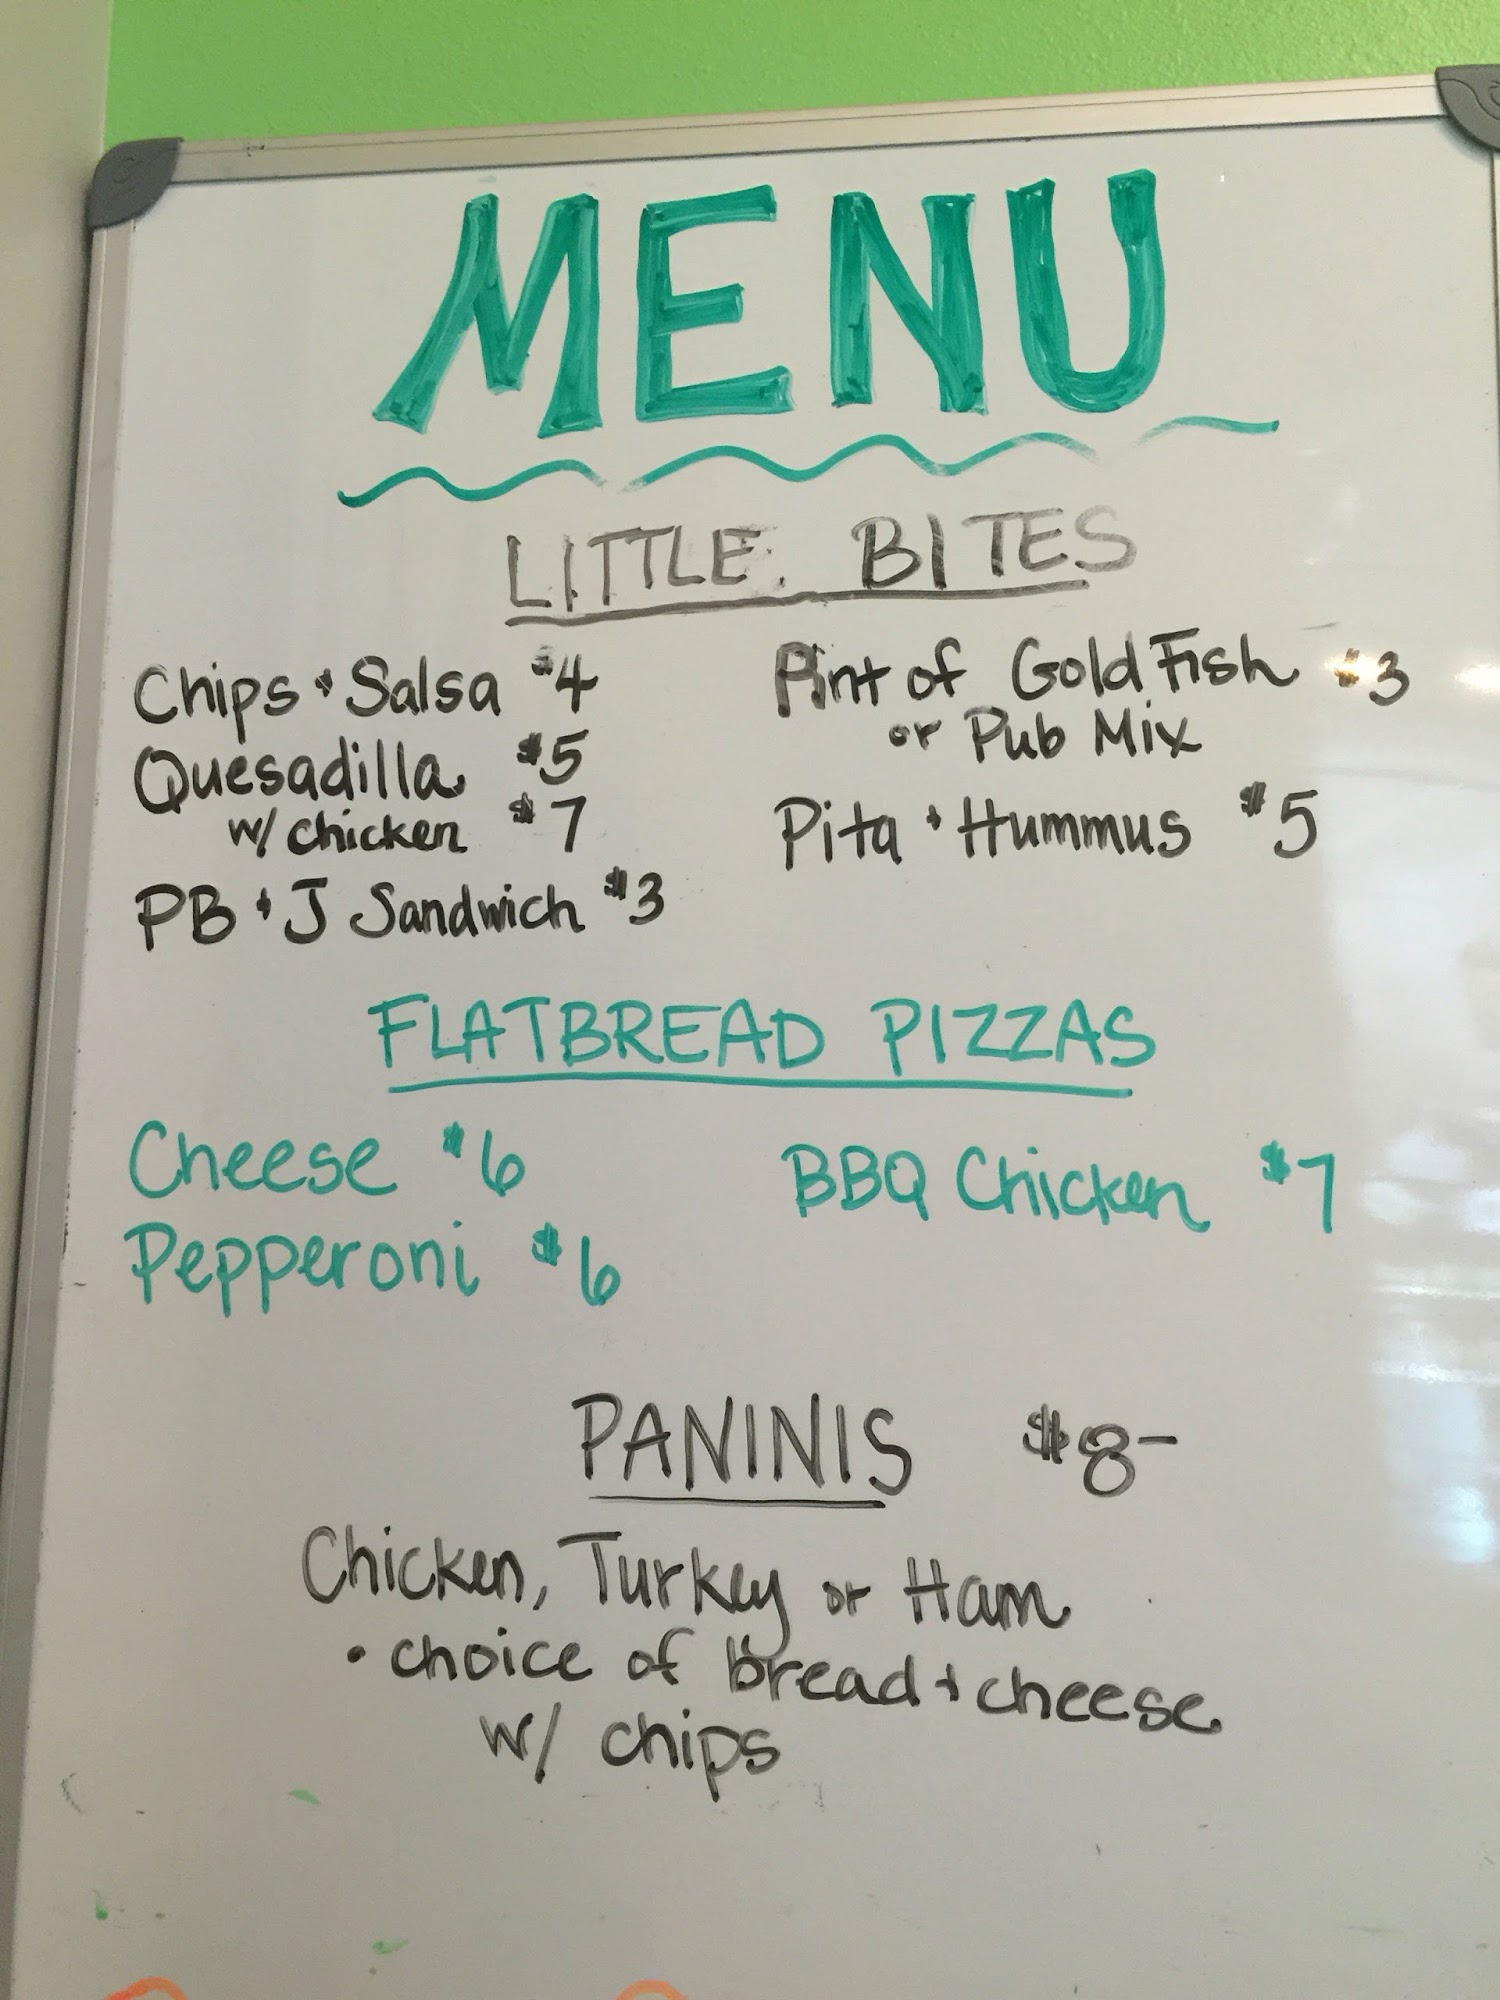 MENU
LITTLE BITES
Chips + Salsa $4
Quesadilla $5
w/ chicken $7
PB + J Sandwich $3
Pint of Gold Fish $3
or Pub Mix
Pita + Hummus $5
FLATBREAD PIZZAS
Cheese $6
Pepperoni $6
BBQ Chicken $7
PANINIS $8-
Chicken, Turkey or Ham
• choice of bread + cheese
w/ chips